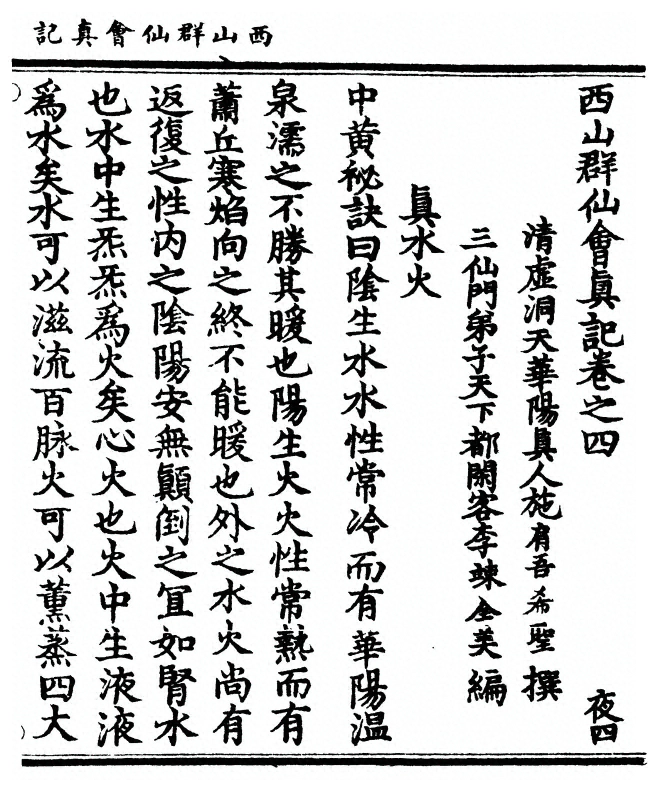 西山群仙會真記
西山群仙會眞記卷之四
夜四
清虛洞天華陽眞人施肩吾希聖撰
三仙門弟子天下都閑客李竦全美編
眞水火
中黃秘訣曰陰生水水性常冷而有華陽温
泉濡之不勝其暖也陽生火火性常熱而有
蕭丘寒焰向之終不能暖也外之水火尚有
返復之性內之陰陽安無顚倒之冝如腎水
也水中生炁炁爲火矣心火也火中生液液
爲水矣水可以滋流百脉火可以薰蒸四大